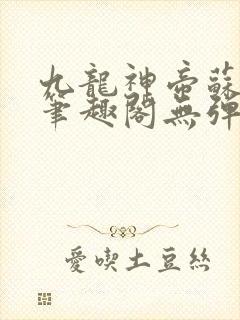 九龍神帝蘇
筆趣閣無彈
愛喫土豆絲